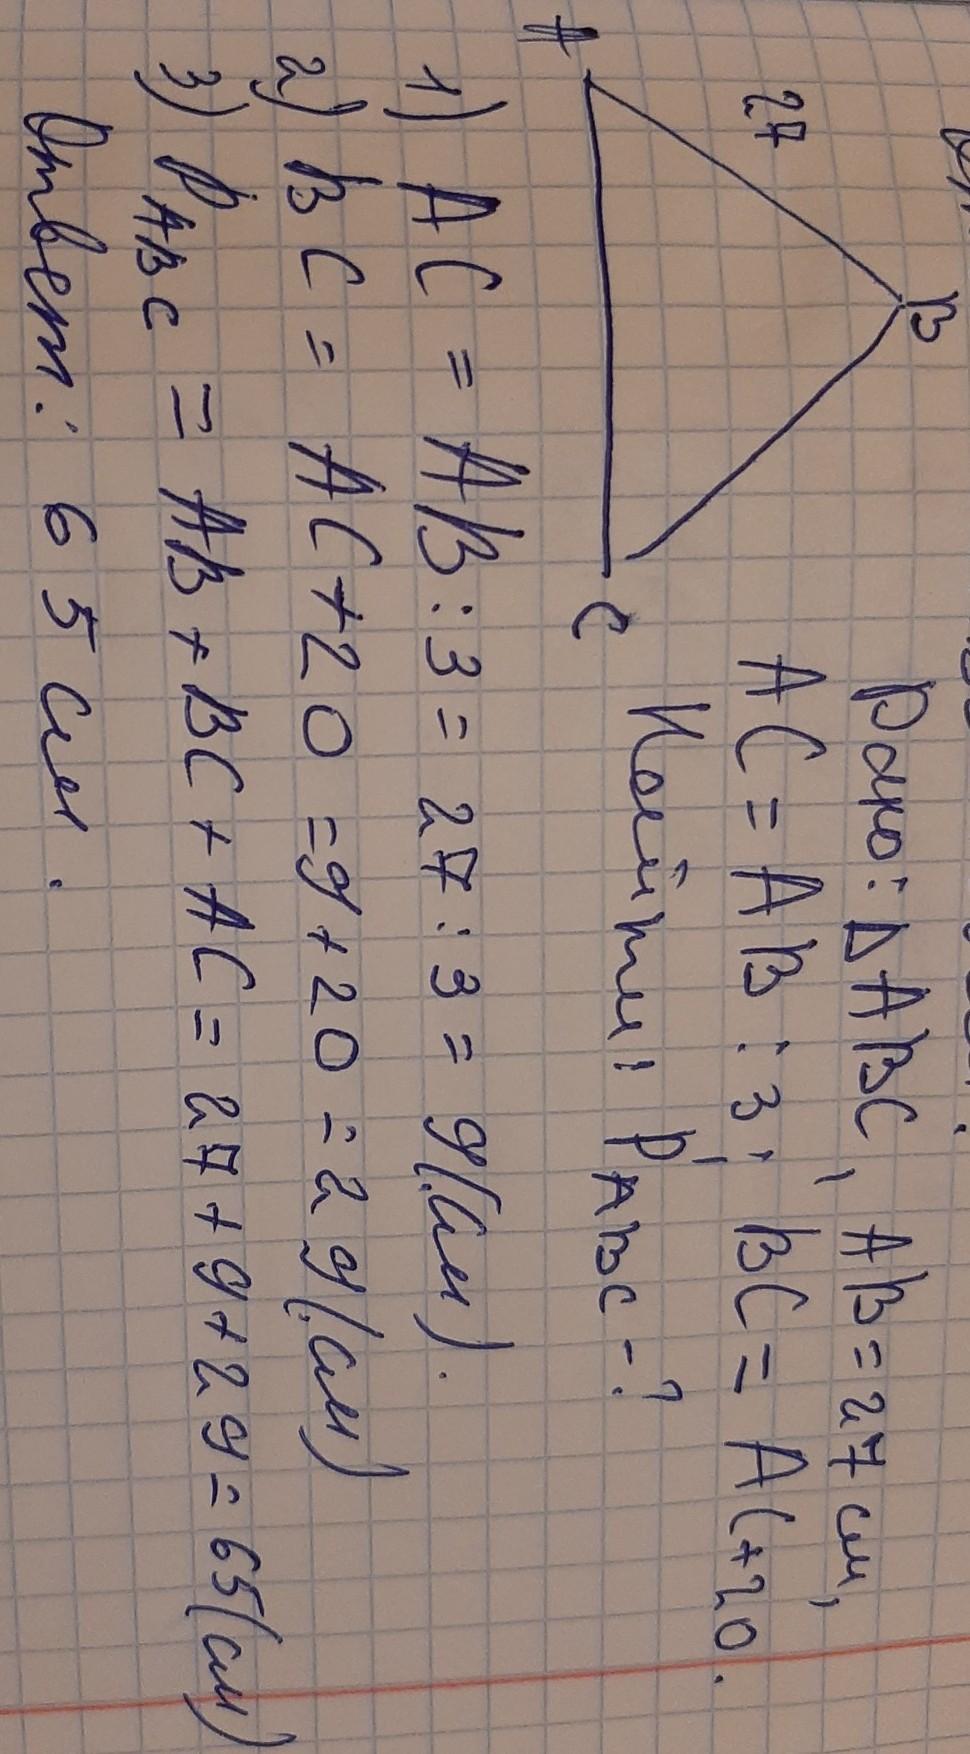 B
27
A
C
Дано: ΔABC, AB = 27 см,
AC = AB : 3; BC = AC + 20.
Найти: P ABC - ?
1) AC = AB : 3 = 27 : 3 = 9 (см).
2) BC = AC + 20 = 9 + 20 = 29 (см)
3) P ABC = AB + BC + AC = 27 + 9 + 29 = 65 (см)
Ответ: 65 см.